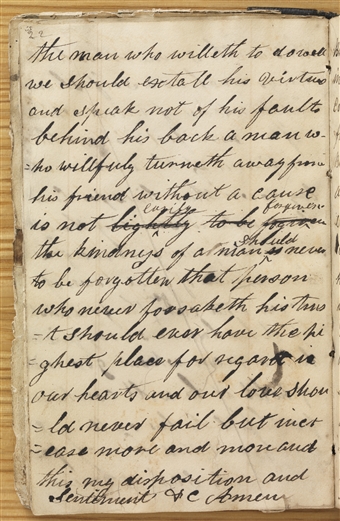 22
the man who willeth to do well
we should extall his virtues
and speak not of his faults
behind his back a man w-
=ho willfuly turneth away from
his friend without a cause
Easily forgiven
is not lightly to be forgiven
Should
the kindness of a man is never
to be forgotten that person
who never forsaketh his trus
=t should ever have the hi
=ghest place for regard in
our hearts and our love shou
=ld never fail but incr
=ease more and more and
this my disposition and
Sentiment &C Amen